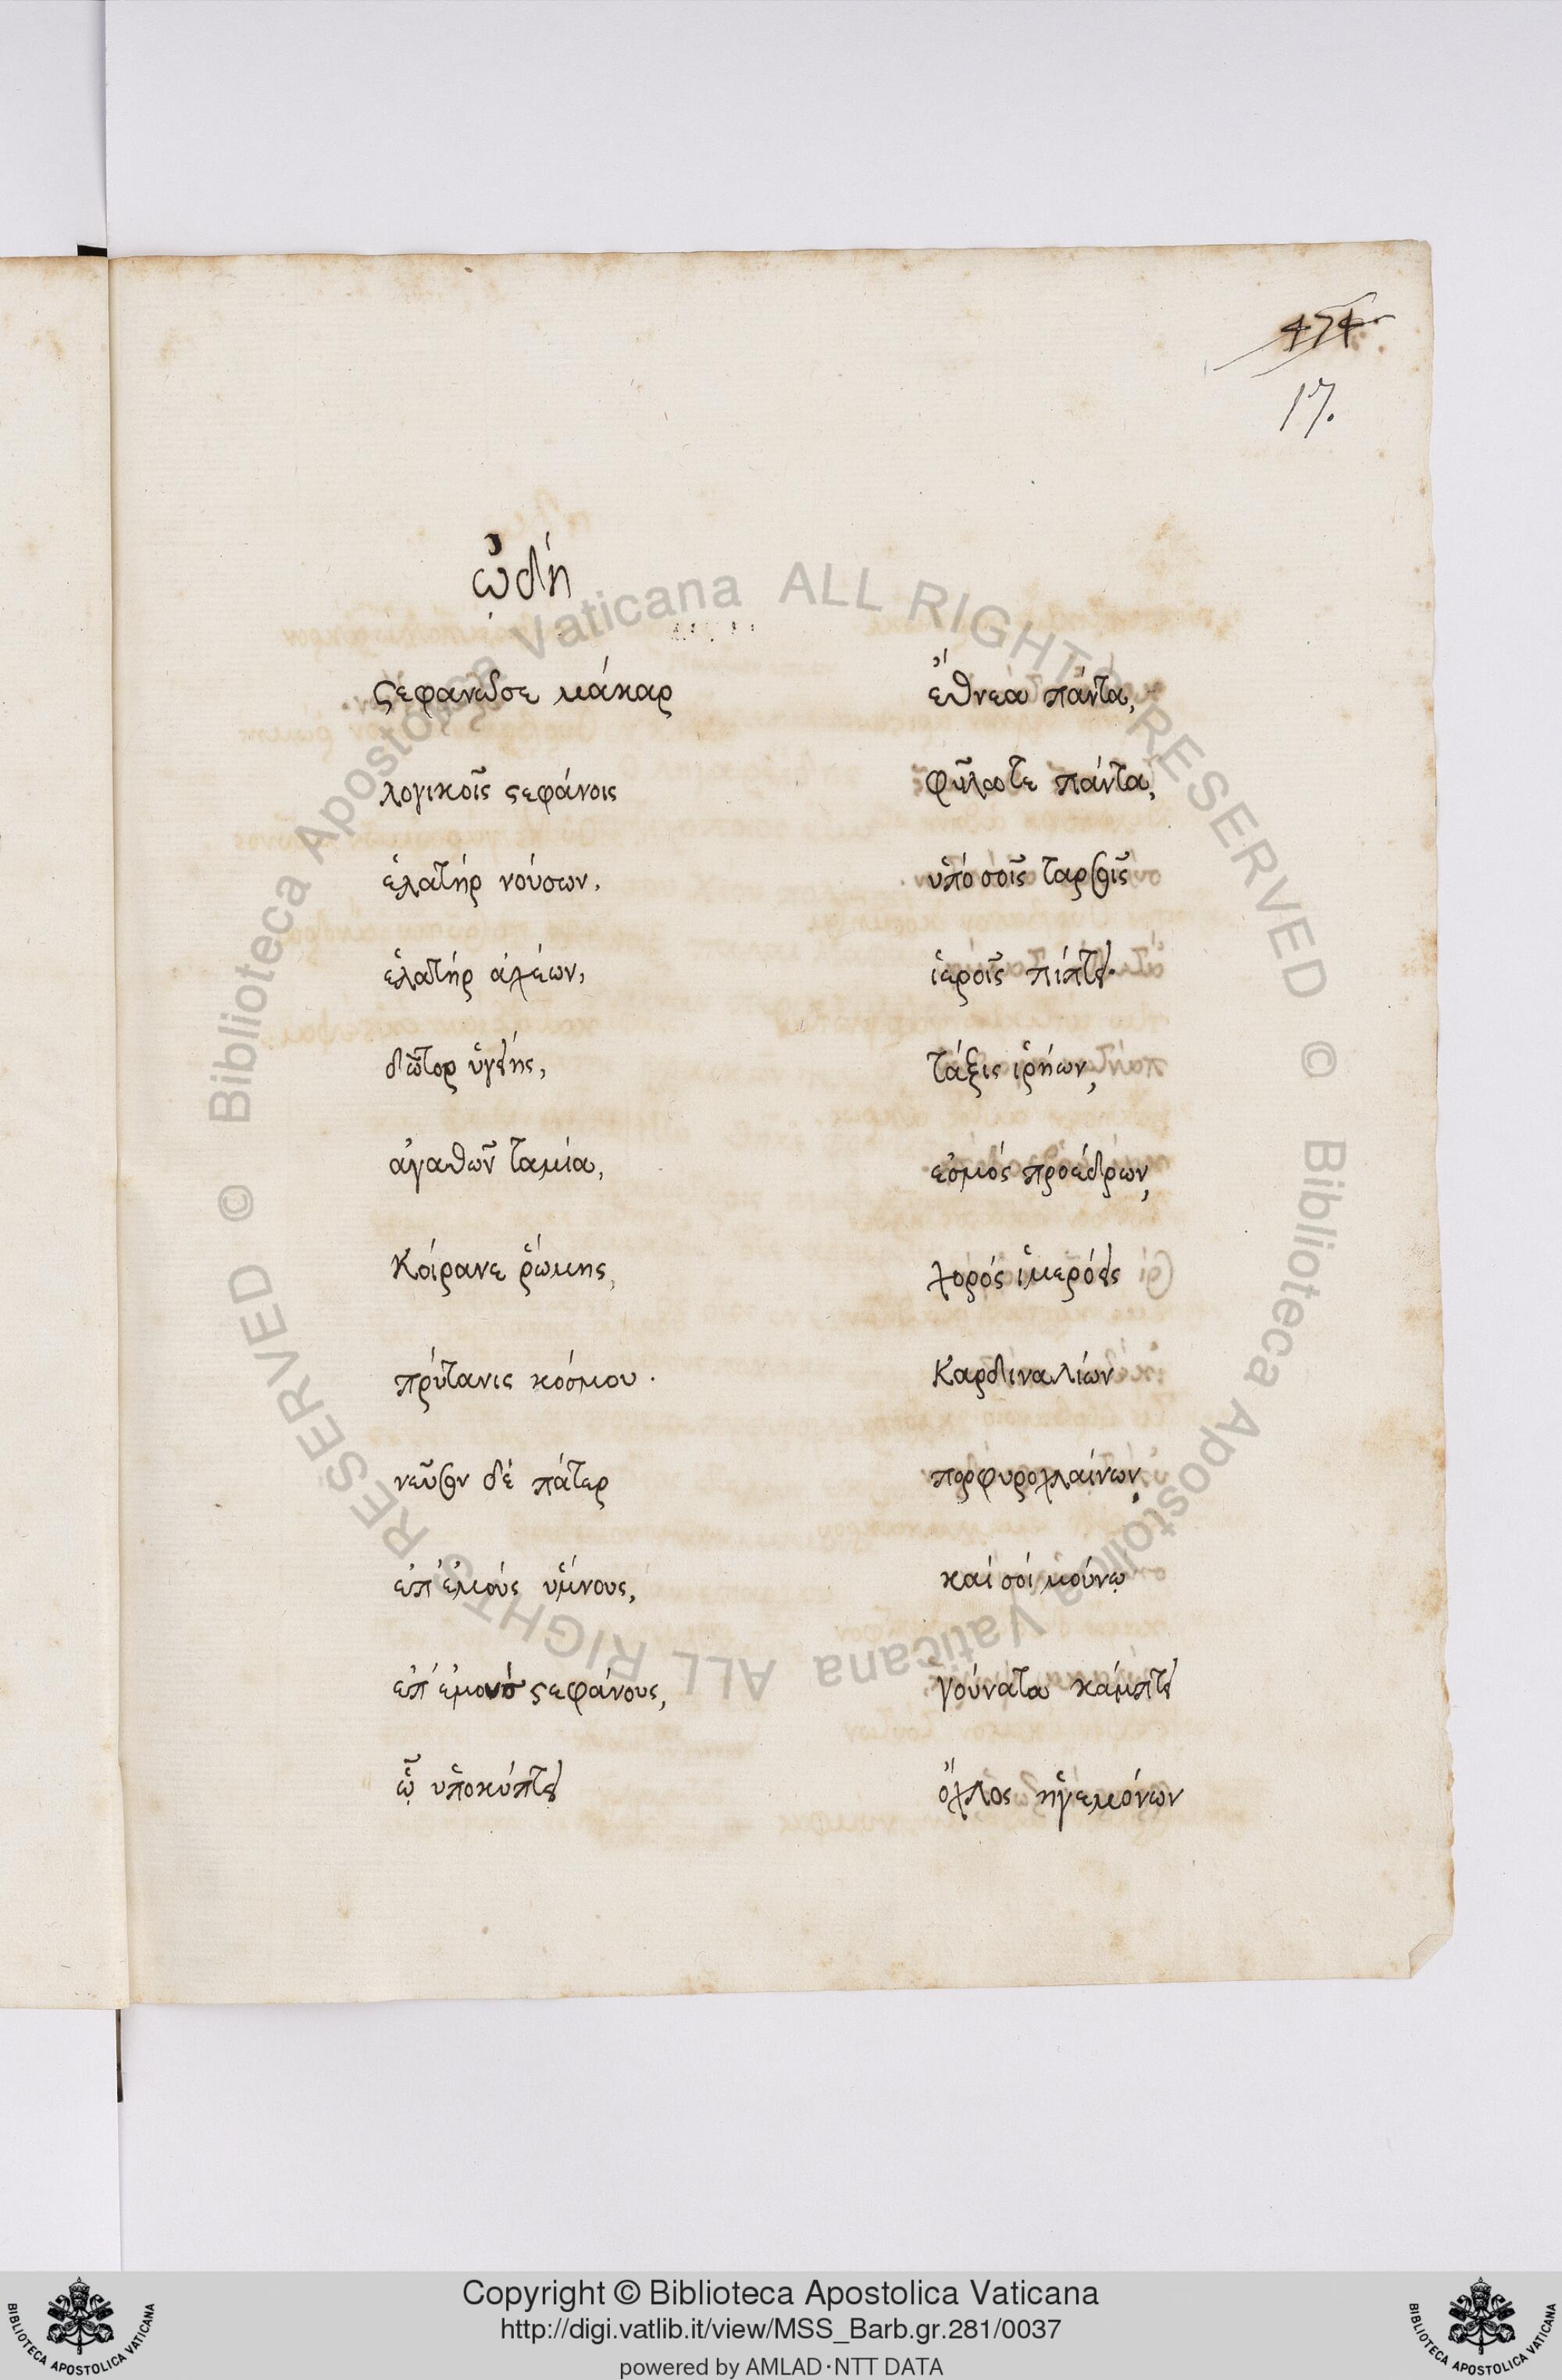 474.
17.
ᾠδή
Στεφανῶσε μάκαρ
λογικοῖς στεφάνοις
ἐλατήρ νούσων,
ἐλατήρ ἀχέων,
δῶτορ ὑγείης,
ἀγαθῶν ταμία,
Κοίρανε ῥώμης,
πρύτανις κόσμου.
νεῦσον δέ πάτερ
ἐπ' ἐμούς ὕμνους,
ἐπ' ἐμούς στεφάνους,
ᾧ ὑποκύπτει
ἔθνεα πάντα,
φῦλάτε πάντα,
ὑπό σοῖς ταρσοῖς
ἱεροῖς πίπτει.
τάξις ἱρήων,
ἑσμός προέδρων,
χορός ἱμερόεις
Καρδιναλίων
πορφυροχλαίνων,
καί σοί μούνῳ
γούνατα κάμπτει
ὄχλος ἡγεμόνων
Copyright © Biblioteca Apostolica Vaticana
http://digi.vatlib.it/view/MSS_Barb.gr.281/0037
powered by AMLAD·NTT DATA
BIBLIOTECA APOSTOLICA VATICANA
BIBLIOTECA APOSTOLICA VATICANA
© Biblioteca Apostolica Vaticana ALL RIGHTS RESERVED
© Biblioteca Apostolica Vaticana ALL RIGHTS RESERVED